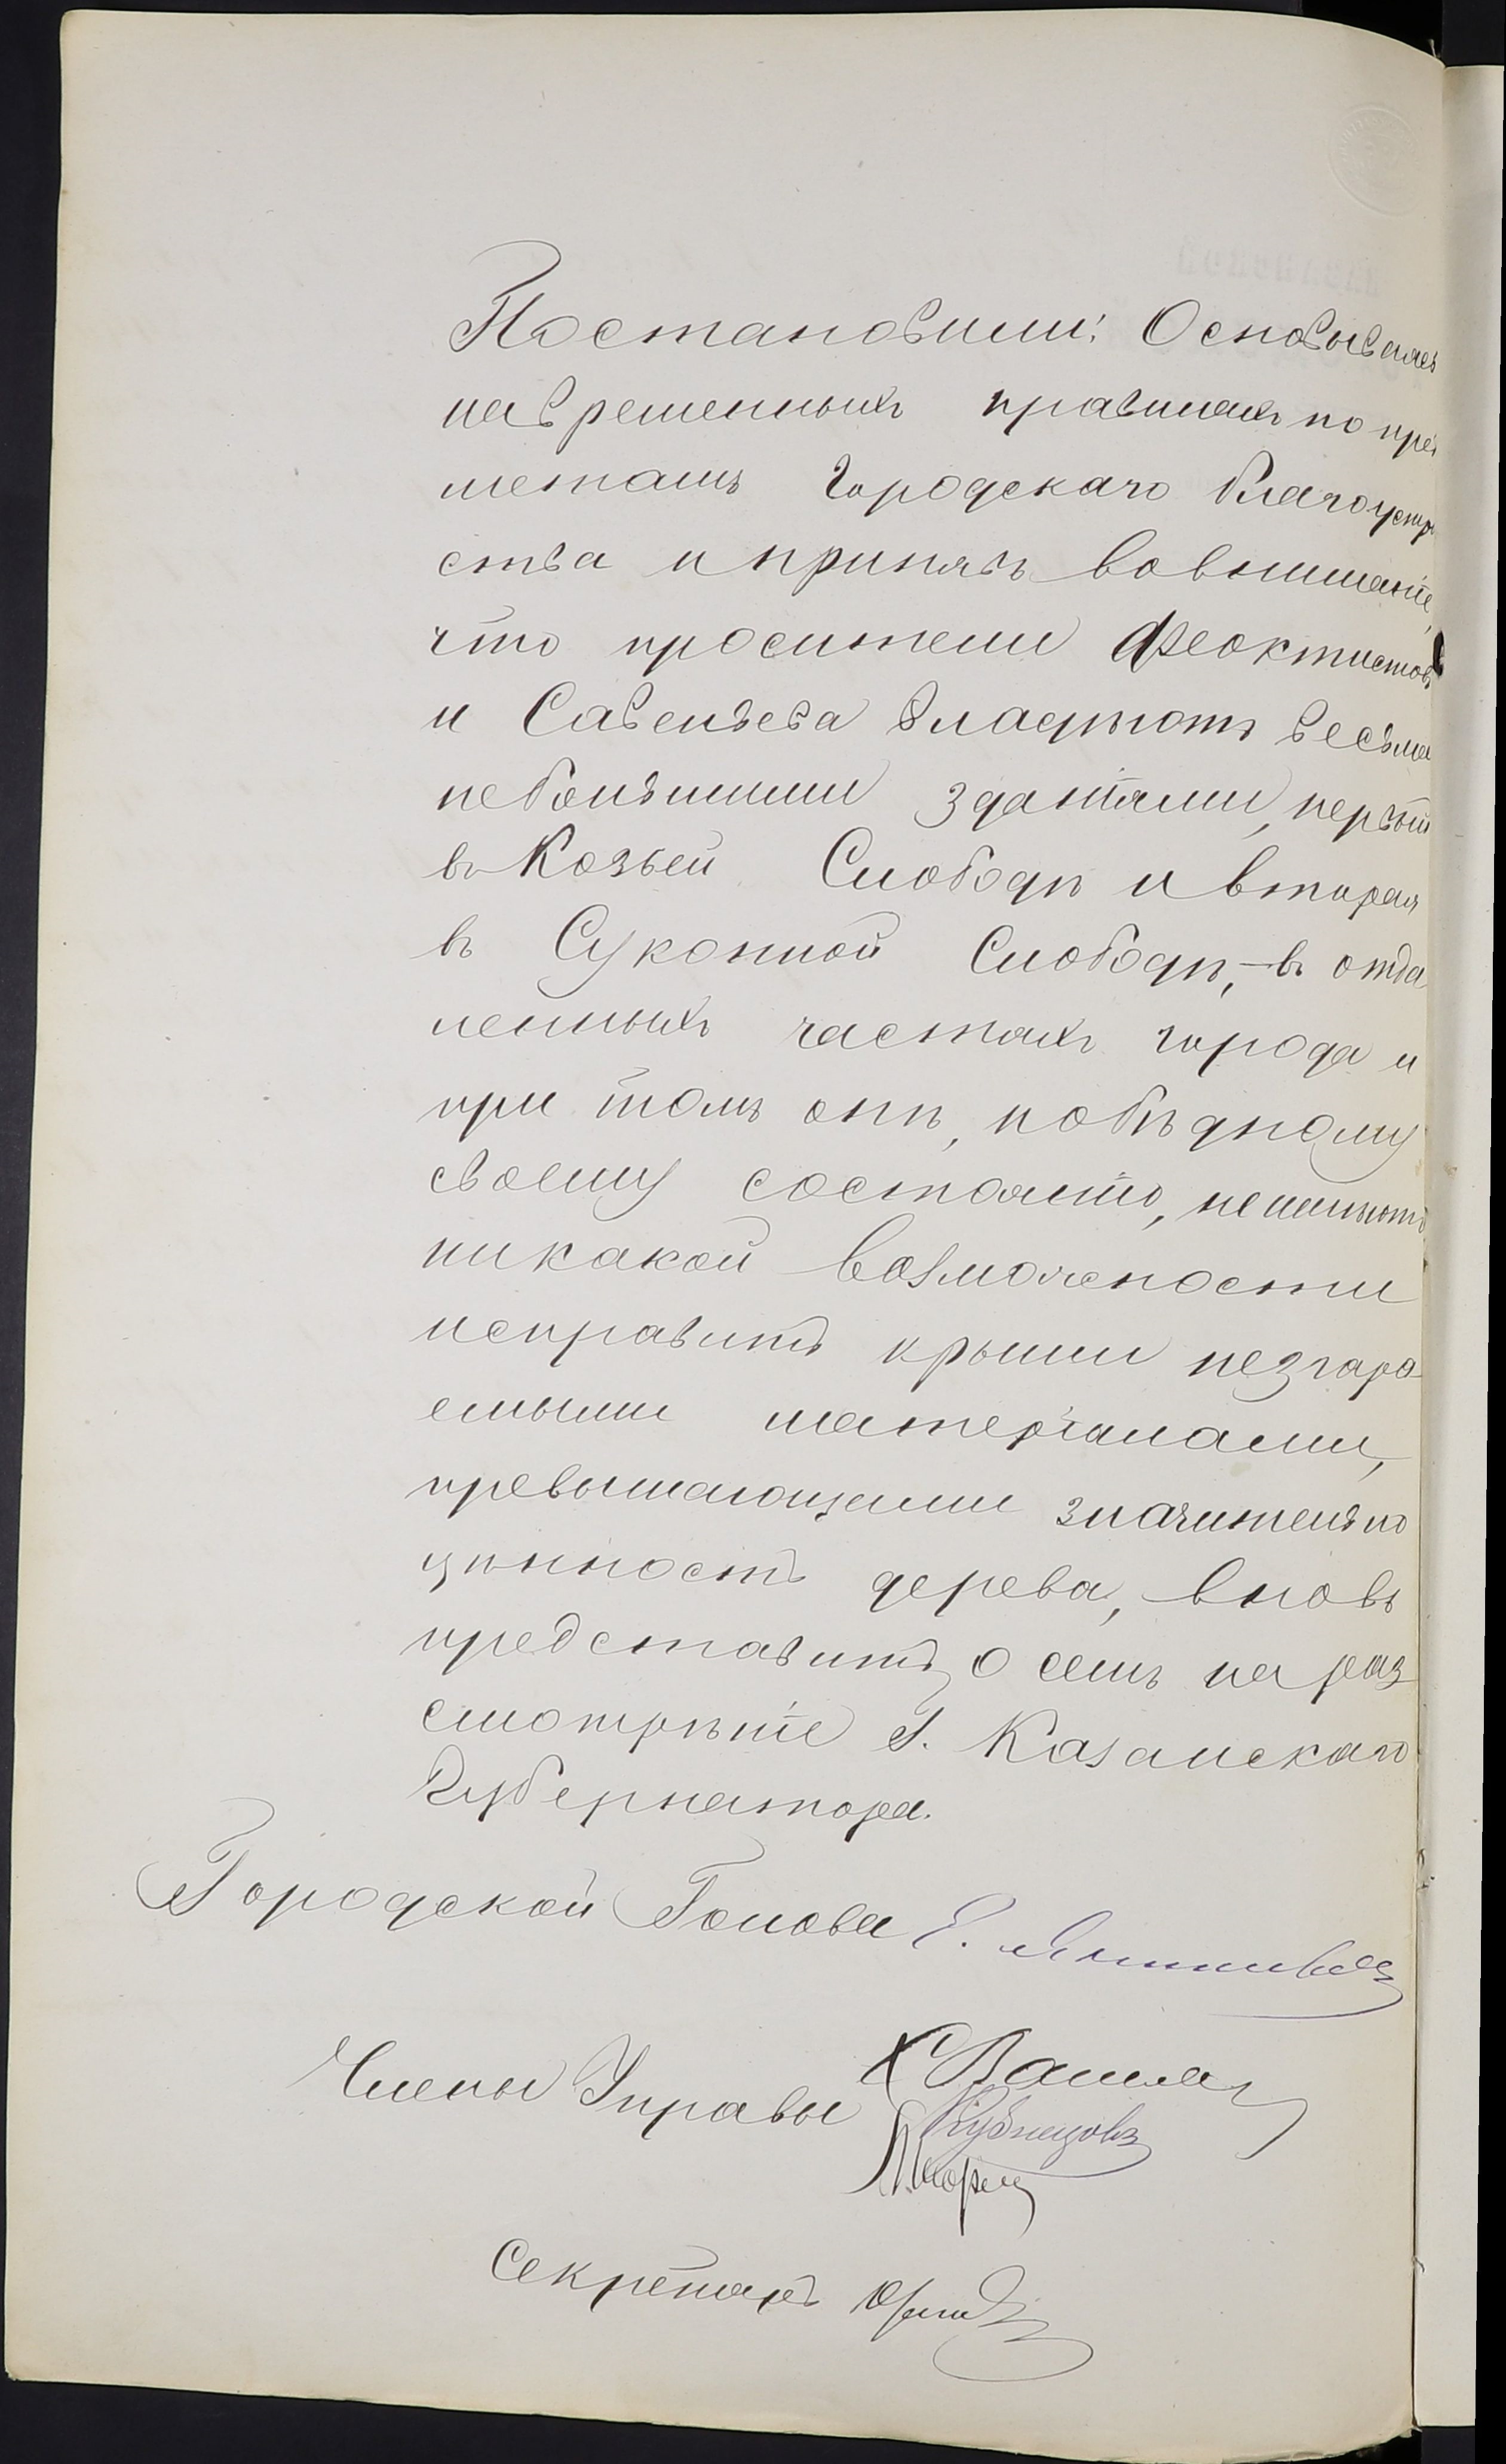 Постановили: Основываясь
на временныхъ правилахъ по пред
метамъ Городскаго благоустрой
ства и принявъ во вниманіе,
что просители Феоктистовъ
и Савельева владѣютъ весьма
небольшими зданіями, первый
въ Козьей Слободѣ и вторая
въ Суконной Слободѣ, - въ отда
ленныхъ частяхъ города и
при томъ они, по бѣдному
своему состоянію, не имѣютъ
никакой возможности
исправить крыши незгара-
емыми матеріалами,
превышающими значительно
цѣнность дерева, вновь
представить о семъ на раз-
смотрѣніе Г. Казанскаго
Губернатора.
Городской Голова
Члены Управы
Кузнецовъ
Секретарь